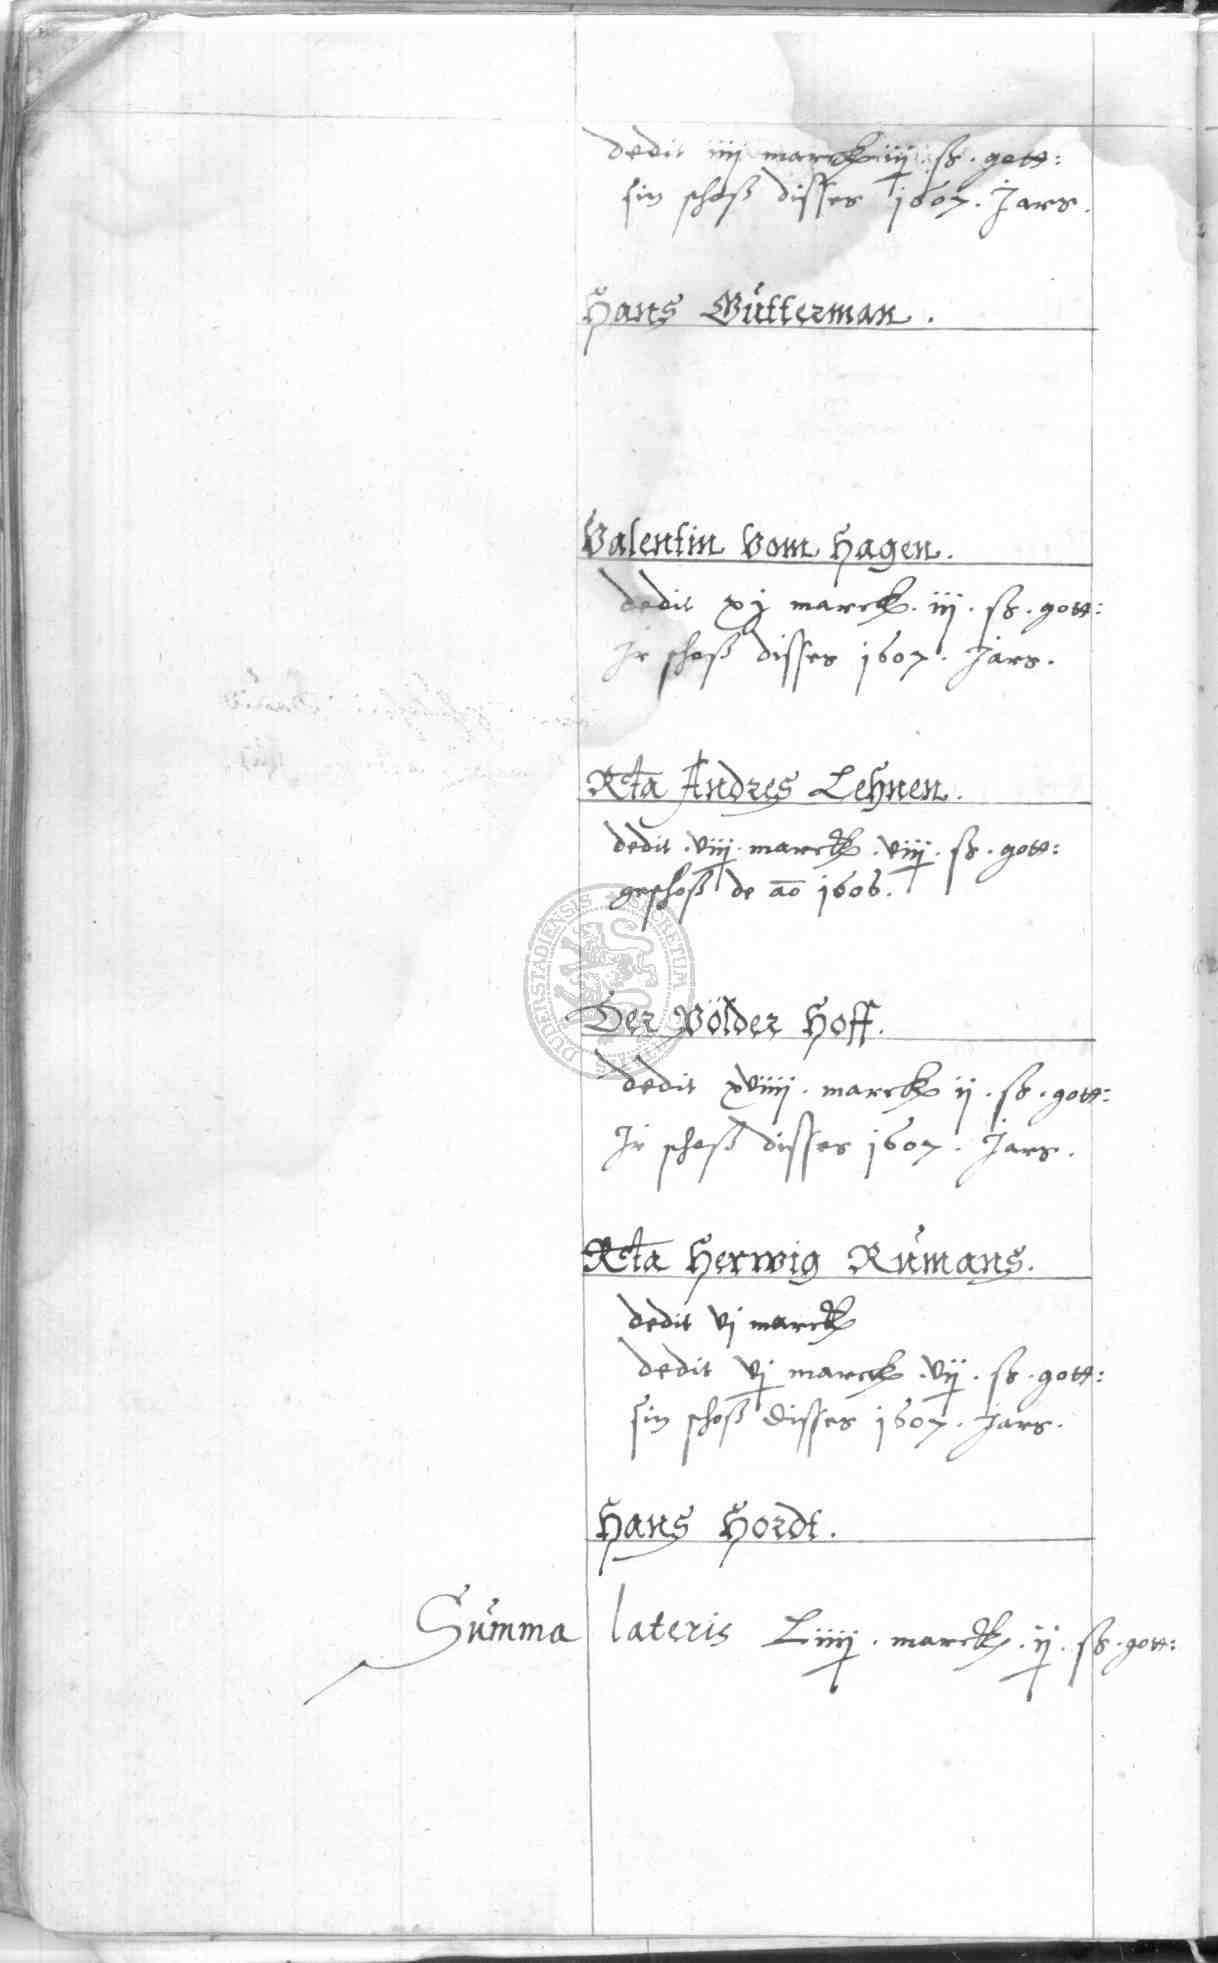 dedit iiij marck iij ß. gott:
sin schoß disses 1607. Jars.
Hans Gütterman.
Valentin Vom Hagen.
dedit xj marck. iij. ß. gott:
Ir schoß disses 1607. Jars.
Rcta Andres Lehnen.
dedit. viij. marck. viij. ß. gott:
geschoß de ao 1606.
Der Pölder Hoff.
dedit xviiij. marck ij. ß. gott:
Ir schoß disses 1607. Jars.
Rcta Herwig Rümans.
dedit vj marck
dedit vj marck. vij. ß. gott:
sin schoß disses 1607. Jars.
Hans Hordt.
Summa lateris Liiij. marck. ij. ß. gott:
DUDERSTADIENSIS SECRETUM